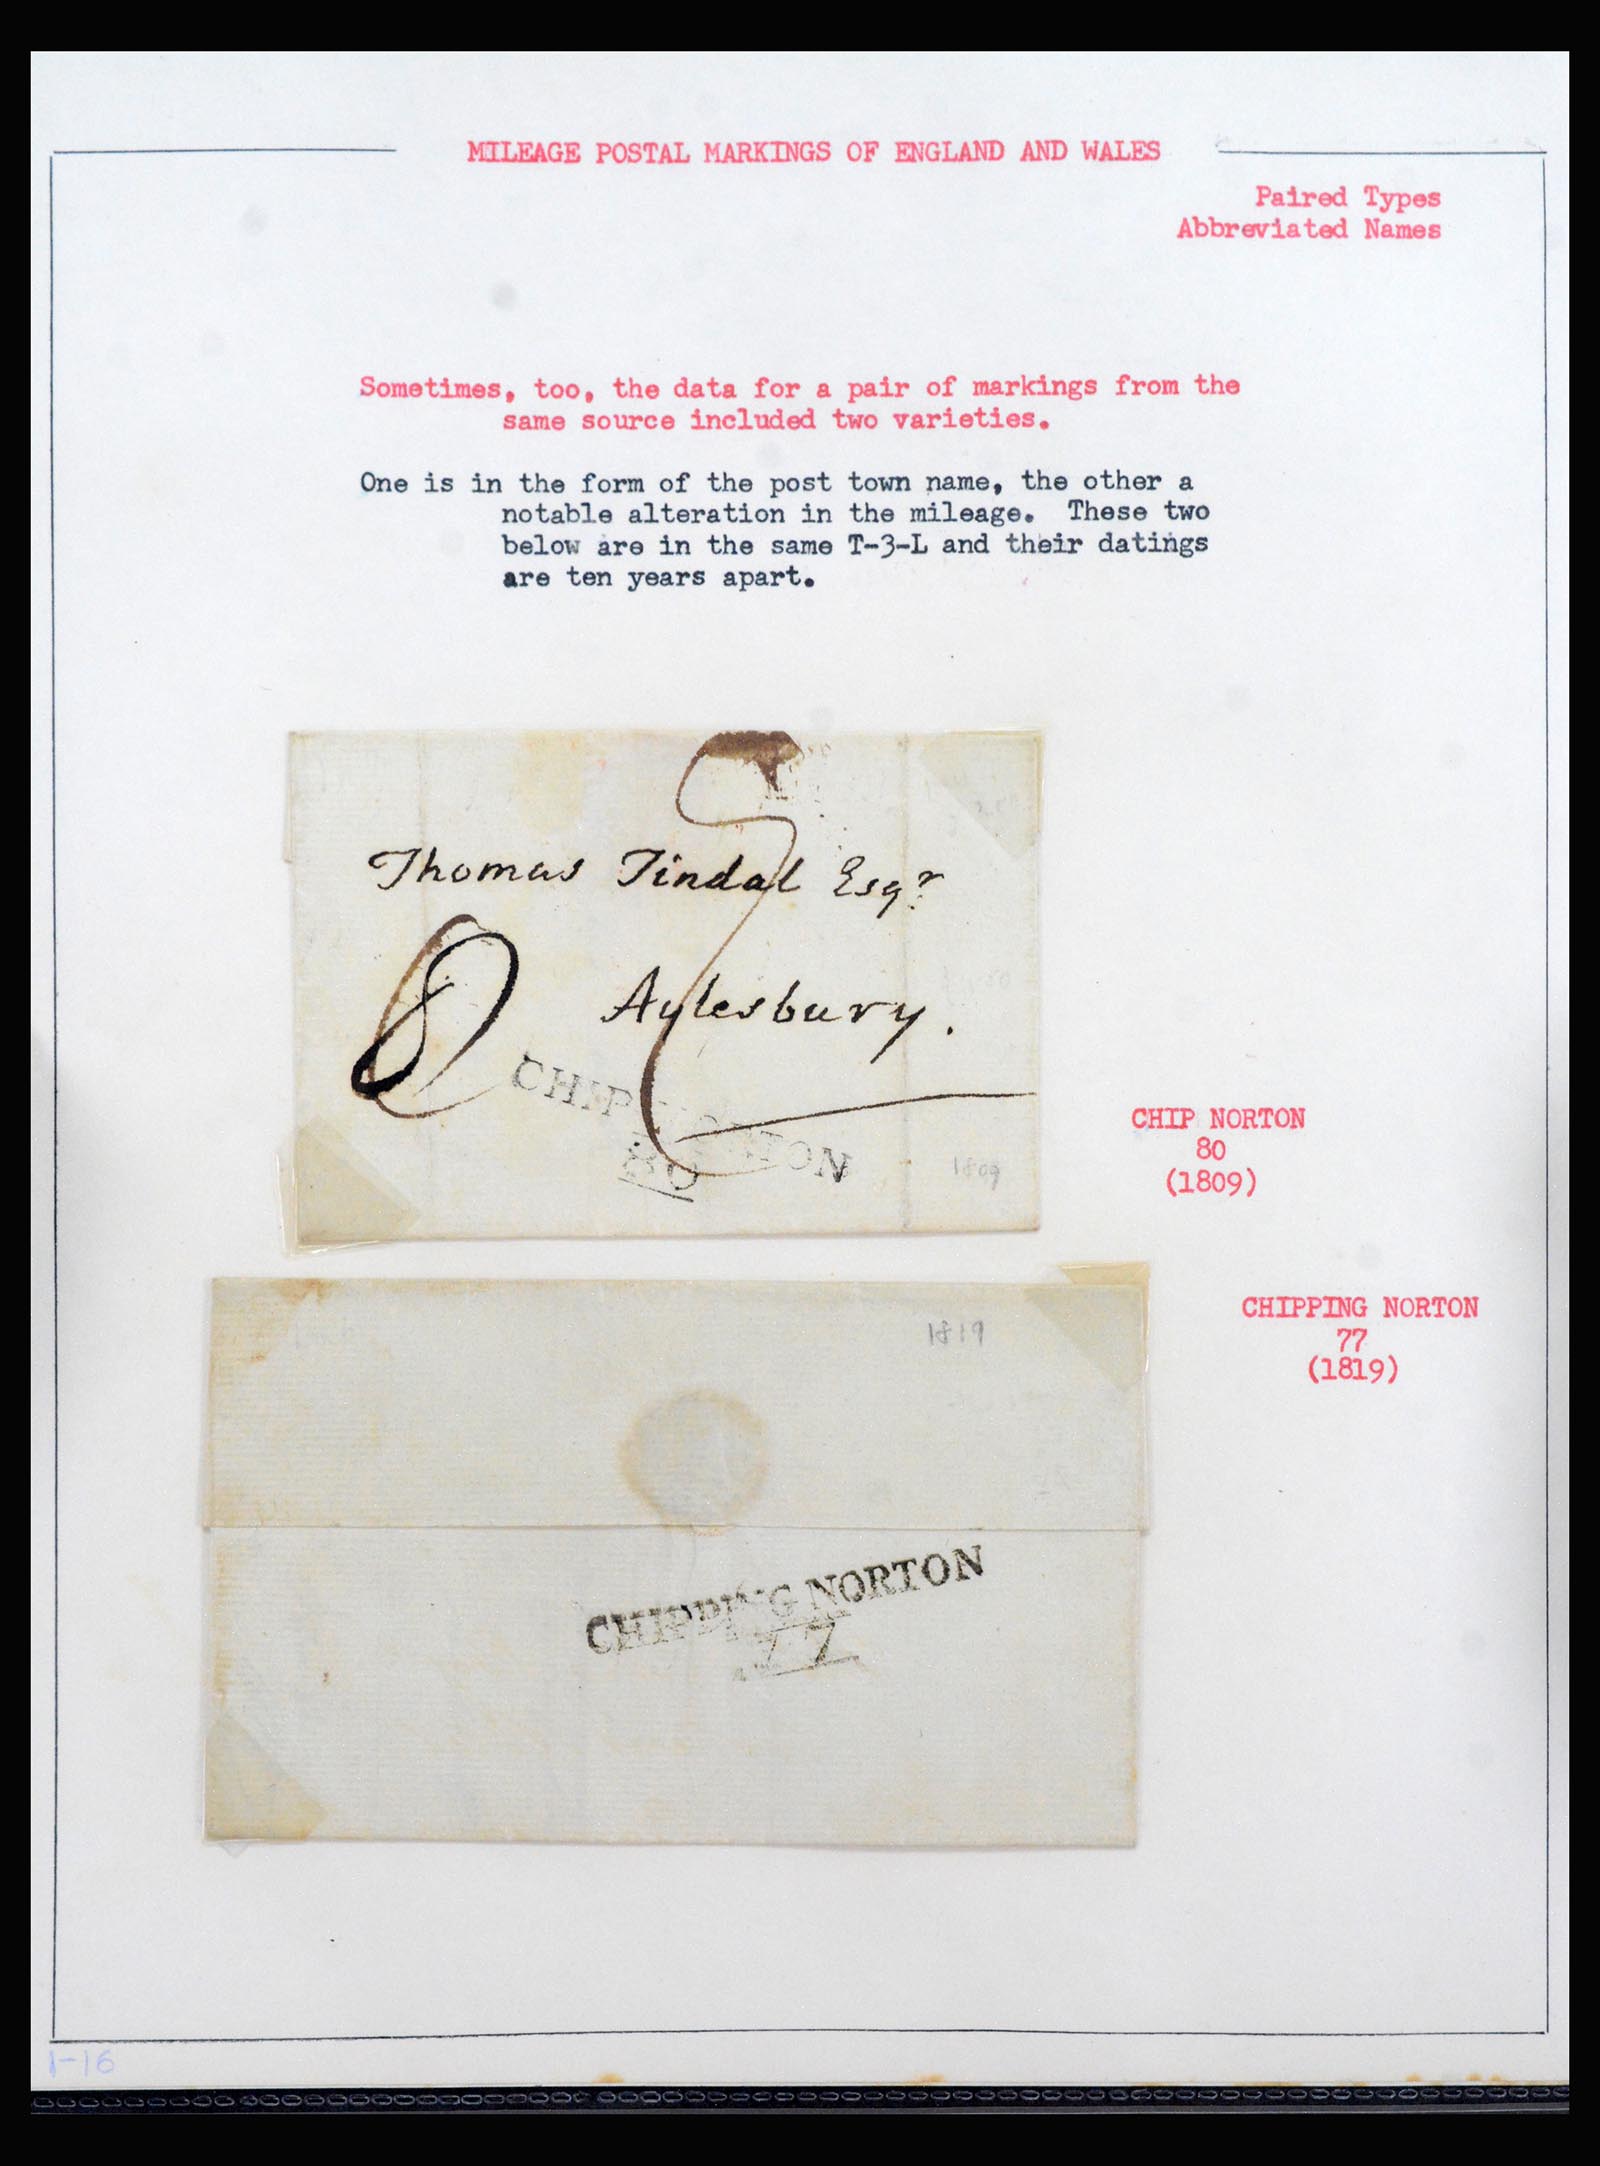 MILEAGE POSTAL MARKINGS OF ENGLAND AND WALES
Paired Types
Abbreviated Names
Sometimes, too, the data for a pair of markings from the
same source included two varieties.
One is in the form of the post town name, the other a
notable alteration in the mileage. These two
below are in the same T-3-L and their datings
are ten years apart.
Thomas Tindal Esqr
8
Aylesbury.
CHIP NORTON
80
1809
CHIP NORTON
80
(1809)
CHIPPING NORTON
77
(1819)
1819
CHIPPING NORTON
77
1-16